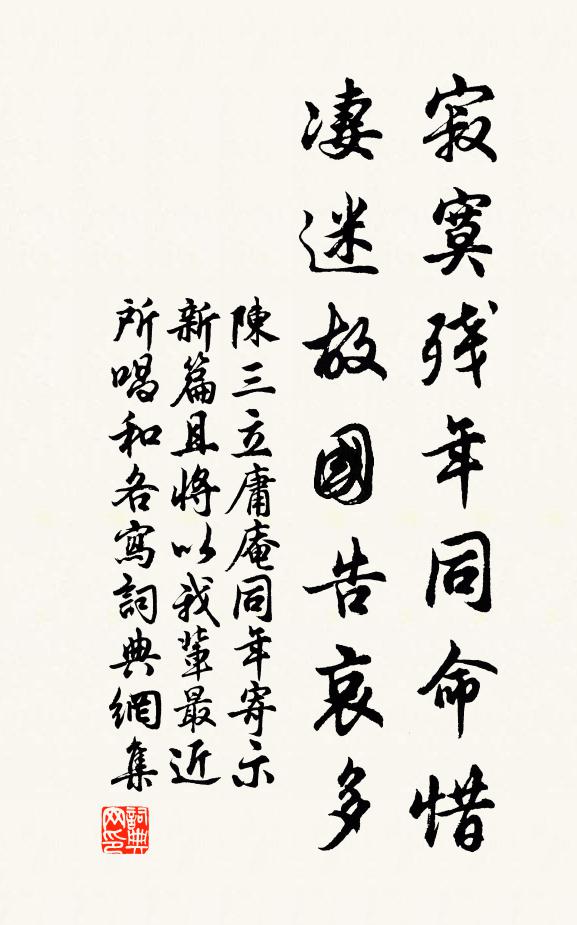 寂寞残年同命惜
凄迷故國告哀多
陳三立庸庵同年寄示
新篇且將以我輩最近
所唱和各寫詞典網集
詞典網印